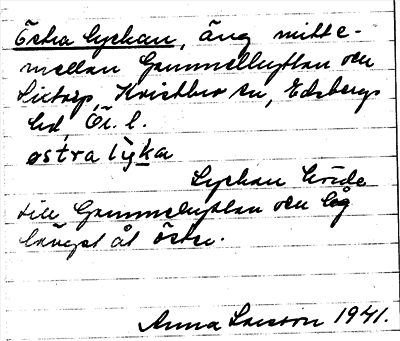 Östra Lyckan, äng mitte-
mellan Gammelhyttan och
Sirtorp, Kvistbro sn, Edsbergs
hd, Ör. l.
østra lyka
Lyckan hörde
till Gammelhyttan och låg
längst åt öster.
Anna Larsson 1941.